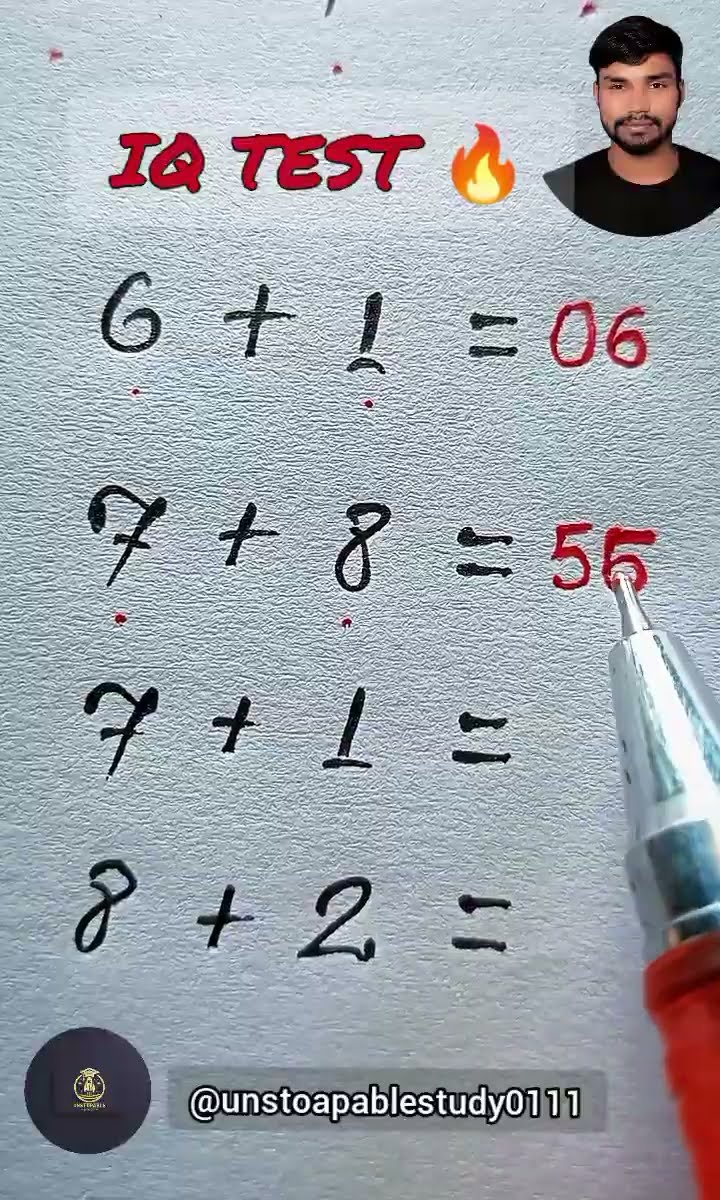 IQ TEST 🔥
6 + 1 = 06
7 + 8 = 55
7 + 1 =
8 + 2 =
@unstoapablestudy0111